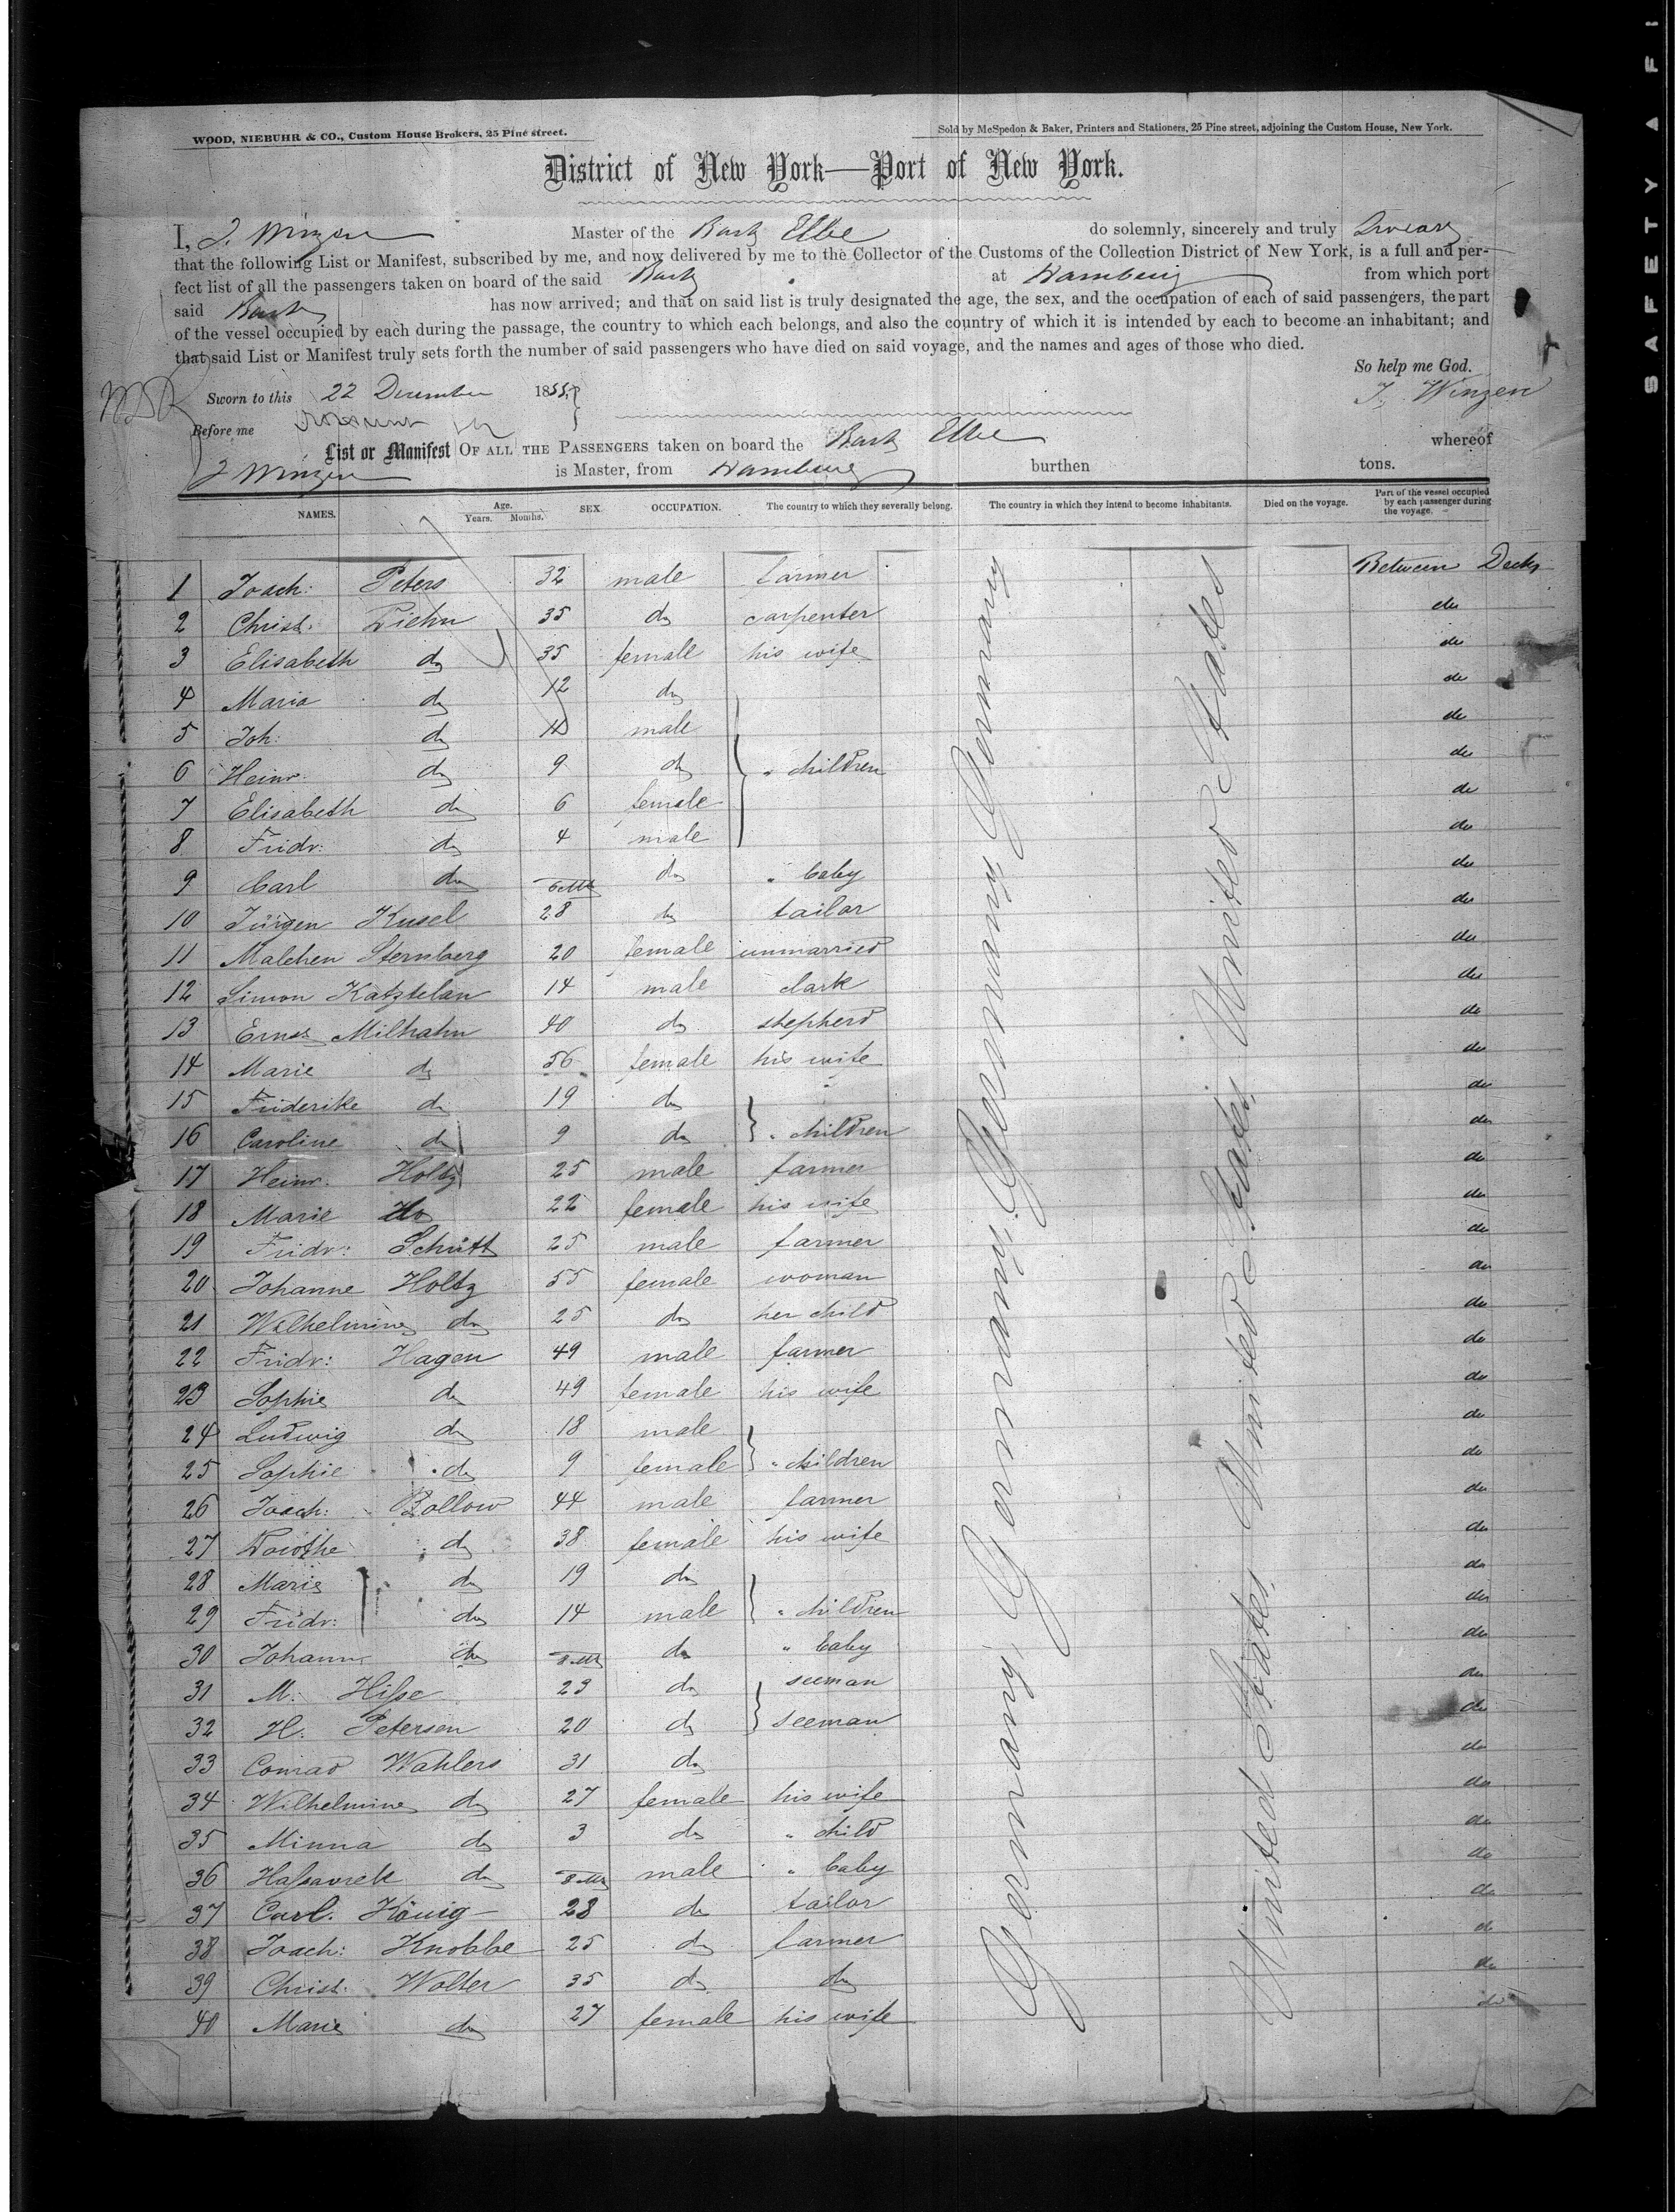 SAFETY FI
WOOD, NIEBUHR & CO., Custom House Brokers, 25 Pine street.
Sold by McSpedon & Baker, Printers and Stationers, 25 Pine street, adjoining the Custom House, New York.
District of New York—Port of New York.
I, J. Winzen Master of the Bark Elbe do solemnly, sincerely and truly swear
that the following List or Manifest, subscribed by me, and now delivered by me to the Collector of the Customs of the Collection District of New York, is a full and per-
fect list of all the passengers taken on board of the said Bark at Hamburg from which port
said Bark has now arrived; and that on said list is truly designated the age, the sex, and the occupation of each of said passengers, the part
of the vessel occupied by each during the passage, the country to which each belongs, and also the country of which it is intended by each to become an inhabitant; and
that said List or Manifest truly sets forth the number of said passengers who have died on said voyage, and the names and ages of those who died.
So help me God.
Sworn to this 22 December 1855. J. Winzen
Before me
List or Manifest OF ALL THE PASSENGERS taken on board the Bark Elbe whereof
J Winzen is Master, from Hamburg burthen tons.
NAMES. Age. Years. Months. SEX. OCCUPATION. The country to which they severally belong. The country in which they intend to become inhabitants. Died on the voyage. Part of the vessel occupied by each passenger during the voyage.
1 Joach: Peters 32 male farmer Between Decks
2 Christ. Tiehn 35 do carpenter do
3 Elisabeth do 35 female his wife do
4 Maria do 12 do do
5 Joh: do 11 male do
6 Heinr. do 9 do " children do
7 Elisabeth do 6 female do
8 Fridr: do 4 male do
9 Carl do 6 Mts do " baby do
10 Jürgen Kusel 28 do tailor do
11 Malchen Sternberg 20 female unmarried do
12 Simon Katztelan 14 male clark do
13 Ernst Milhahn 40 do stepherd do
14 Marie do 56 female his wife do
15 Friderike do 19 do do
16 Caroline do 9 do " children do
17 Heinr. Holtz 25 male farmer do
18 Marie do 22 female his wife do
19 Fridr: Schütt 25 male farmer do
20 Johanne Holtz 55 female woman do
21 Wilhelmine do 25 do her child do
22 Fridr: Hagen 49 male farmer do
23 Sophie do 49 female his wife do
24 Ludwig do 18 male do
25 Sophie do 9 female " children do
26 Joach: Bollow 44 male farmer do
27 Dorothe do 38 female his wife do
28 Marie do 19 do do
29 Fridr: do 14 male " children do
30 Johann do 8 Mts do " baby do
31 M. Hisse 23 do seeman do
32 H. Petersen 20 do seeman do
33 Conrad Wahlers 31 do do
34 Wilhelmine do 27 female his wife do
35 Minna do 3 do " child do
36 do 8 Mts male " baby do
37 Carl. König 28 do tailor do
38 Joach: Knobbe 25 do farmer do
39 Christ. Wolter 35 do do do
40 Marie do 27 female his wife do
Germany, Germany, Germany, Germany
United States, United States, United States